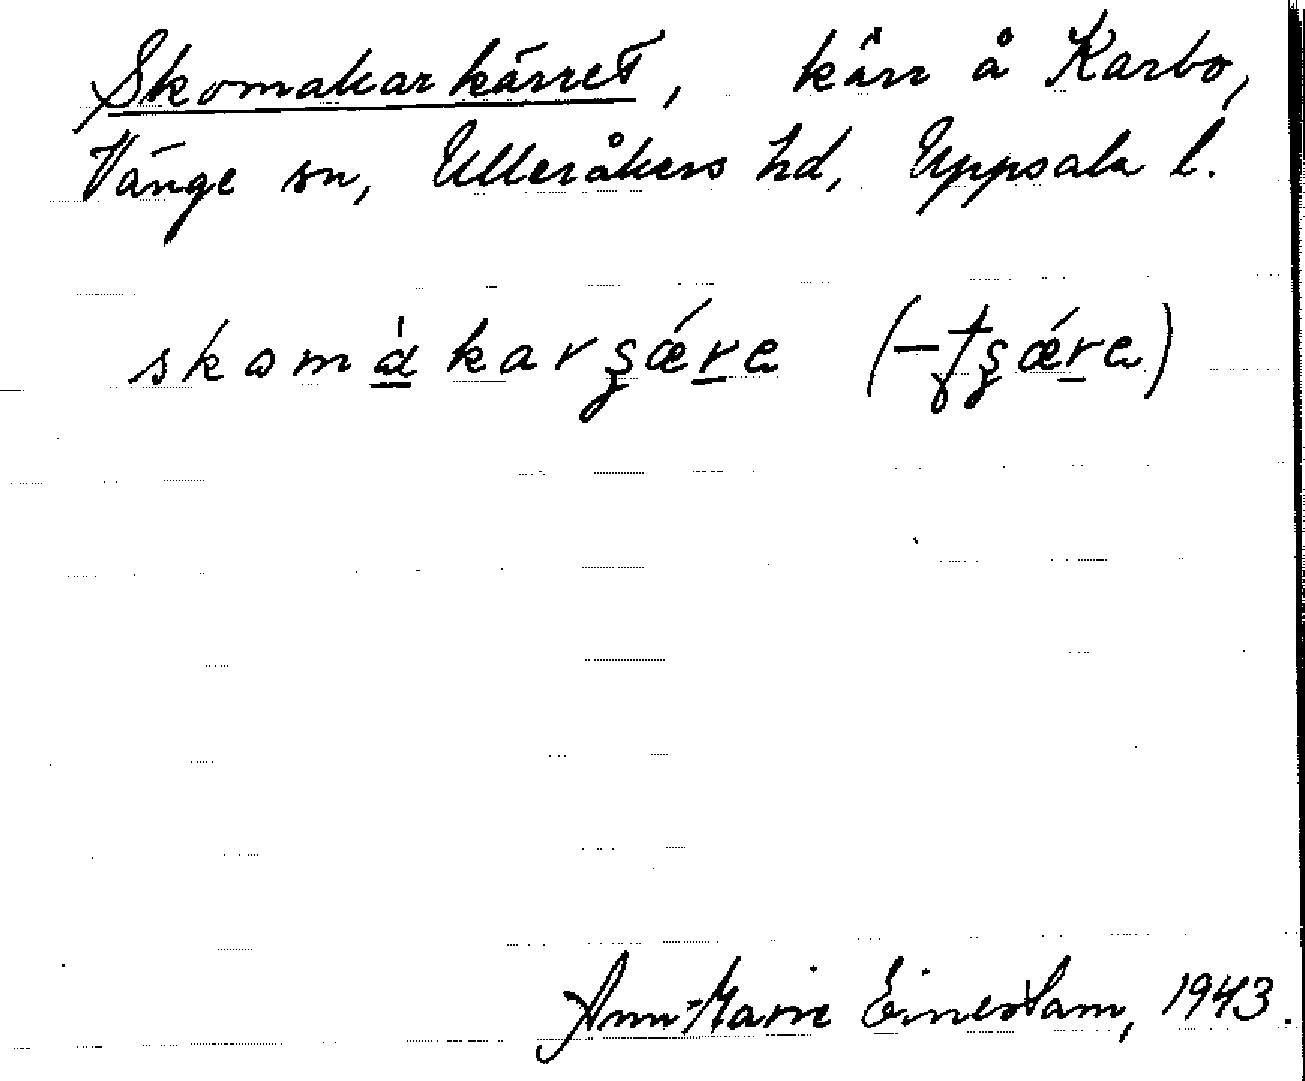 Skomakarkärret, kärr å Karbo,
Vänge sn, Ulleråkers hd, Uppsala l.
skomákarʂǽre (–ʈʂǽre)
Ann-Marie Einerstam, 1943.